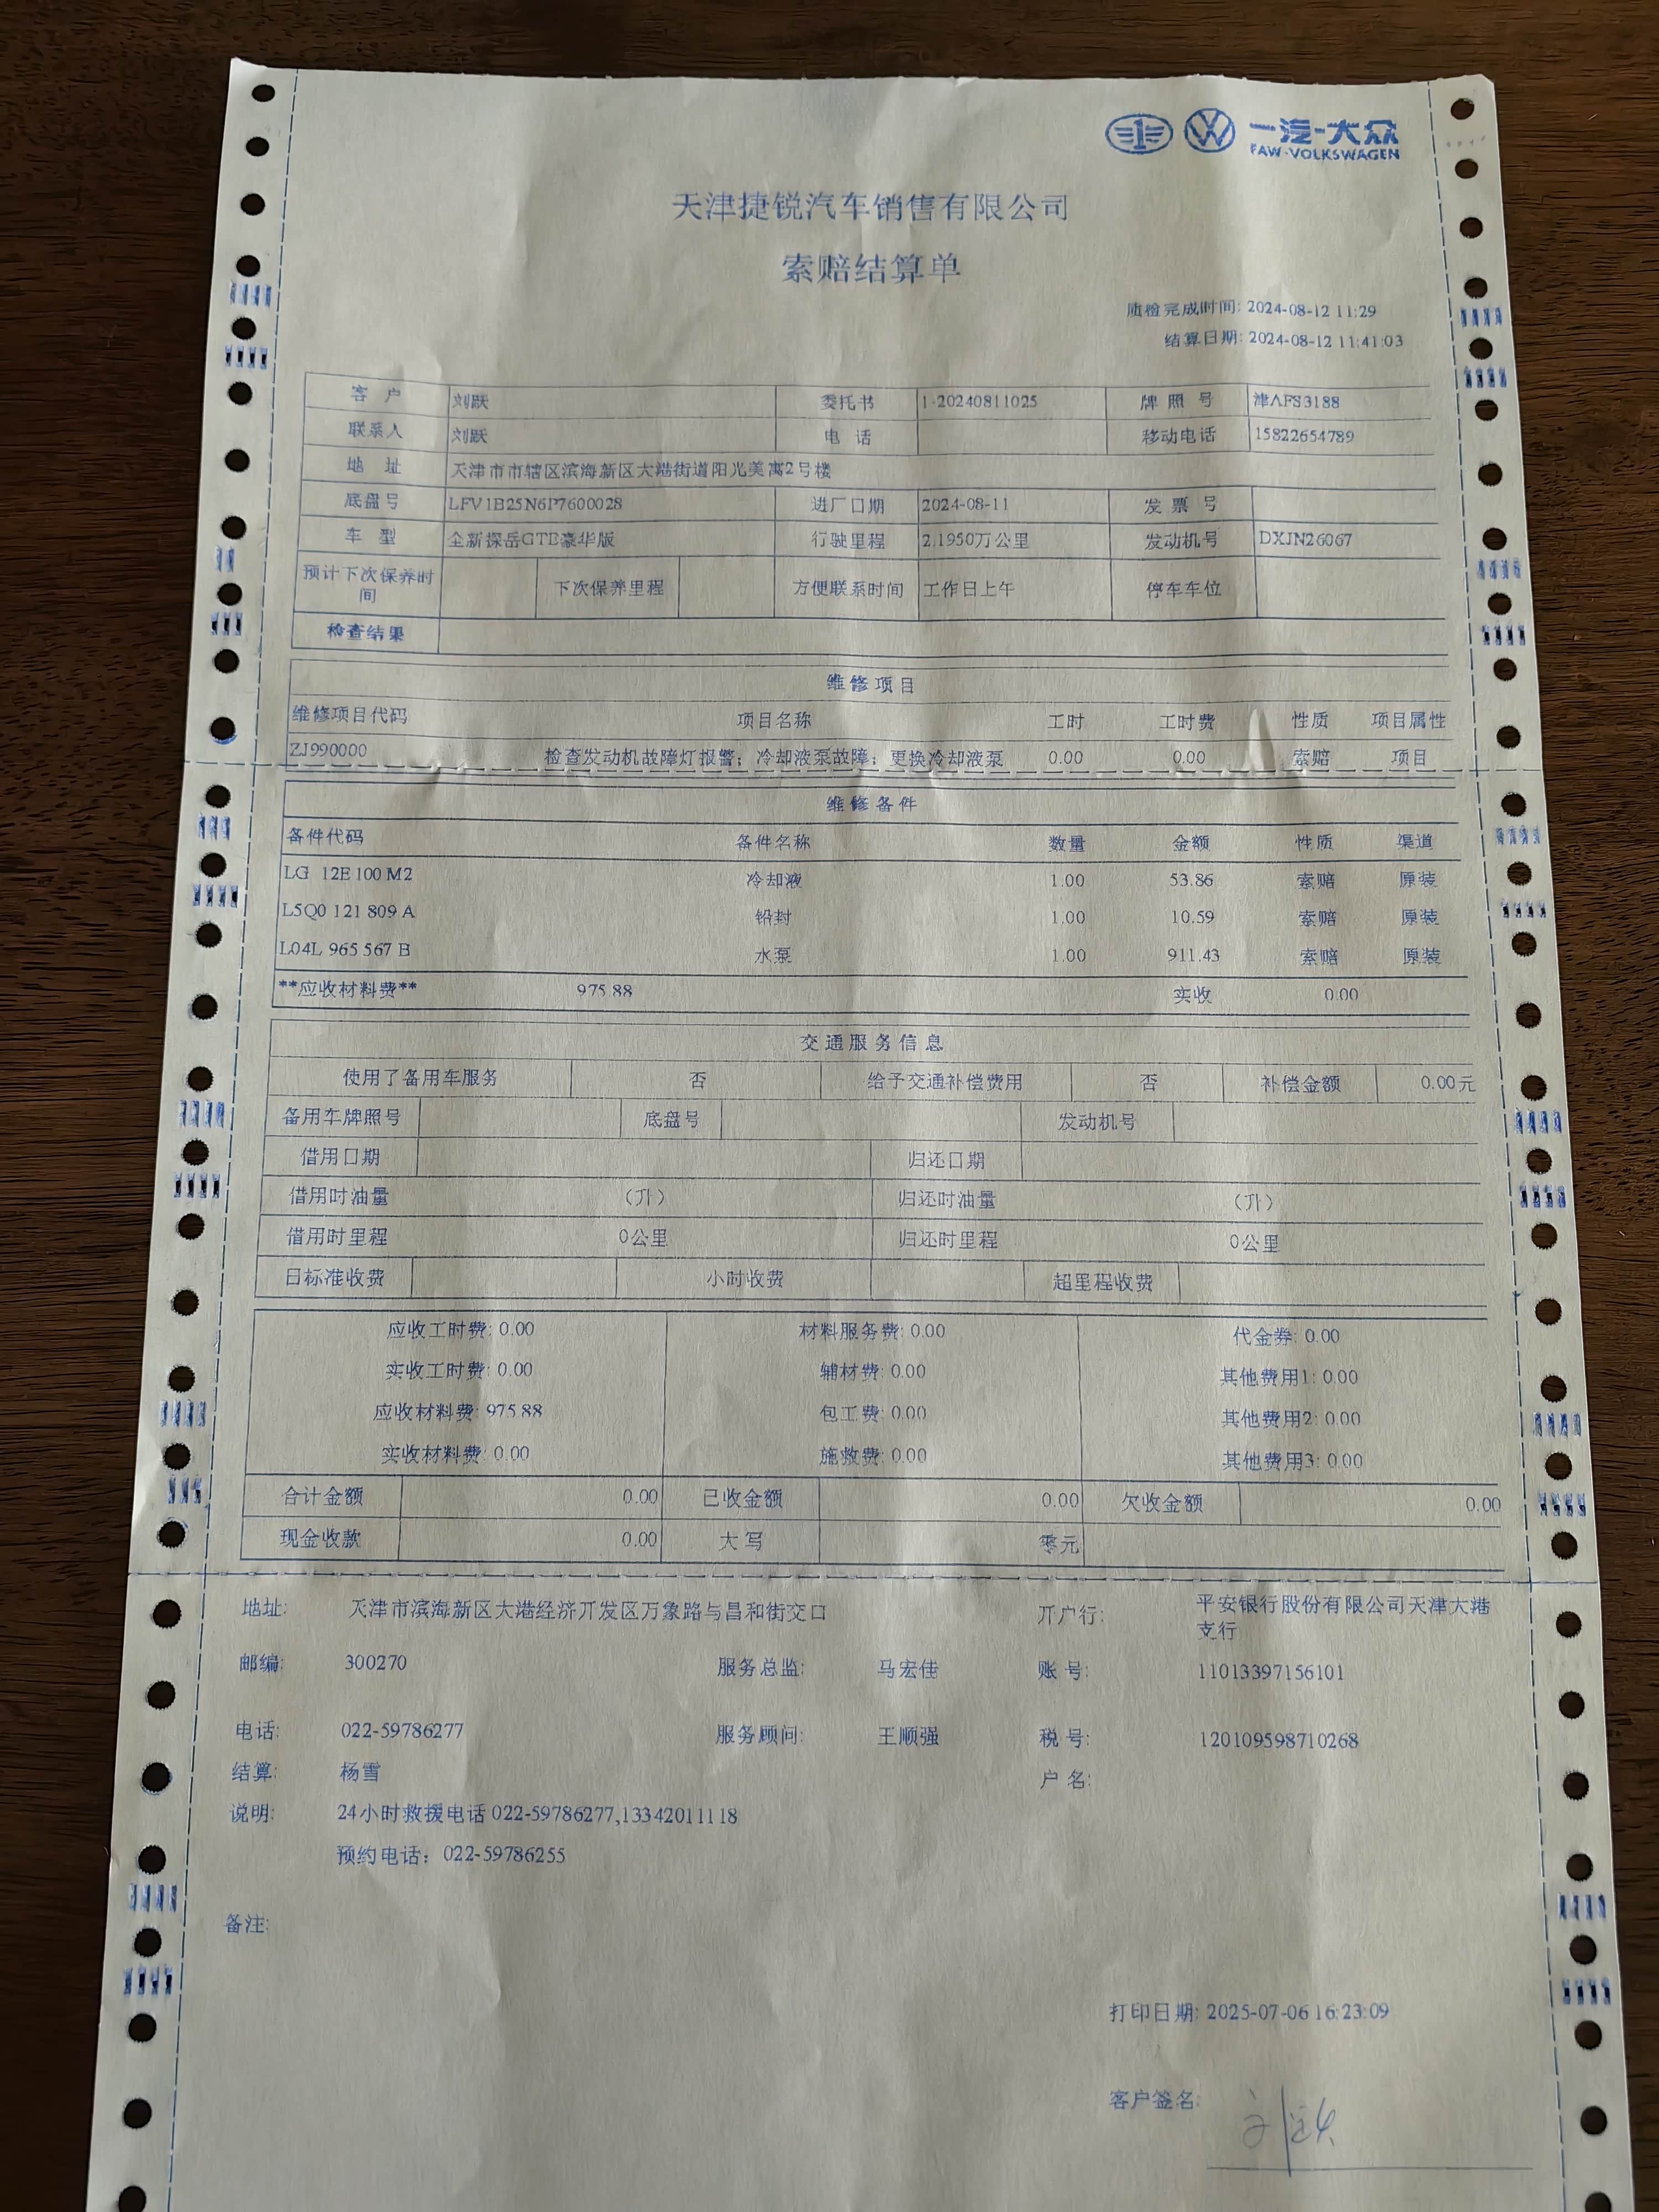 一汽-大众
FAW-VOLKSWAGEN
天津捷锐汽车销售有限公司
索赔结算单
质检完成时间: 2024-08-12 11:29
结算日期: 2024-08-12 11:41:03
客 户 刘跃 委托书 1-20240811025 牌 照 号 津AFS3188
联系人 刘跃 电 话 移动电话 15822654789
地 址 天津市市辖区滨海新区大港街道阳光美寓2号楼
底盘号 LFV1B25N6P7600028 进厂日期 2024-08-11 发 票 号
车 型 全新探岳GTE豪华版 行驶里程 2.1950万公里 发动机号 DXJN26067
预计下次保养时间 下次保养里程 方便联系时间 工作日上午 停车车位
检查结果
维修项目
维修项目代码 项目名称 工时 工时费 性质 项目属性
ZJ990000 检查发动机故障灯报警；冷却液泵故障；更换冷却液泵 0.00 0.00 索赔 项目
维修备件
备件代码 备件名称 数量 金额 性质 渠道
LG 12E 100 M2 冷却液 1.00 53.86 索赔 原装
L5Q0 121 809 A 铅封 1.00 10.59 索赔 原装
L04L 965 567 B 水泵 1.00 911.43 索赔 原装
**应收材料费** 975.88 实收 0.00
交通服务信息
使用了备用车服务 否 给予交通补偿费用 否 补偿金额 0.00元
备用车牌照号 底盘号 发动机号
借用日期 归还日期
借用时油量 （升） 归还时油量 （升）
借用时里程 0公里 归还时里程 0公里
日标准收费 小时收费 超里程收费
应收工时费: 0.00 材料服务费: 0.00 代金券: 0.00
实收工时费: 0.00 辅材费: 0.00 其他费用1: 0.00
应收材料费: 975.88 包工费: 0.00 其他费用2: 0.00
实收材料费: 0.00 施救费: 0.00 其他费用3: 0.00
合计金额 0.00 已收金额 0.00 欠收金额 0.00
现金收款 0.00 大 写 零元
地址: 天津市滨海新区大港经济开发区万象路与昌和街交口 开户行: 平安银行股份有限公司天津大港
支行
邮编: 300270 服务总监: 马宏佳 账 号: 11013397156101
电话: 022-59786277 服务顾问: 王顺强 税 号: 120109598710268
结算: 杨雪 户 名:
说明: 24小时救援电话 022-59786277,13342011118
预约电话：022-59786255
备注:
打印日期: 2025-07-06 16:23:09
客户签名: 刘跃